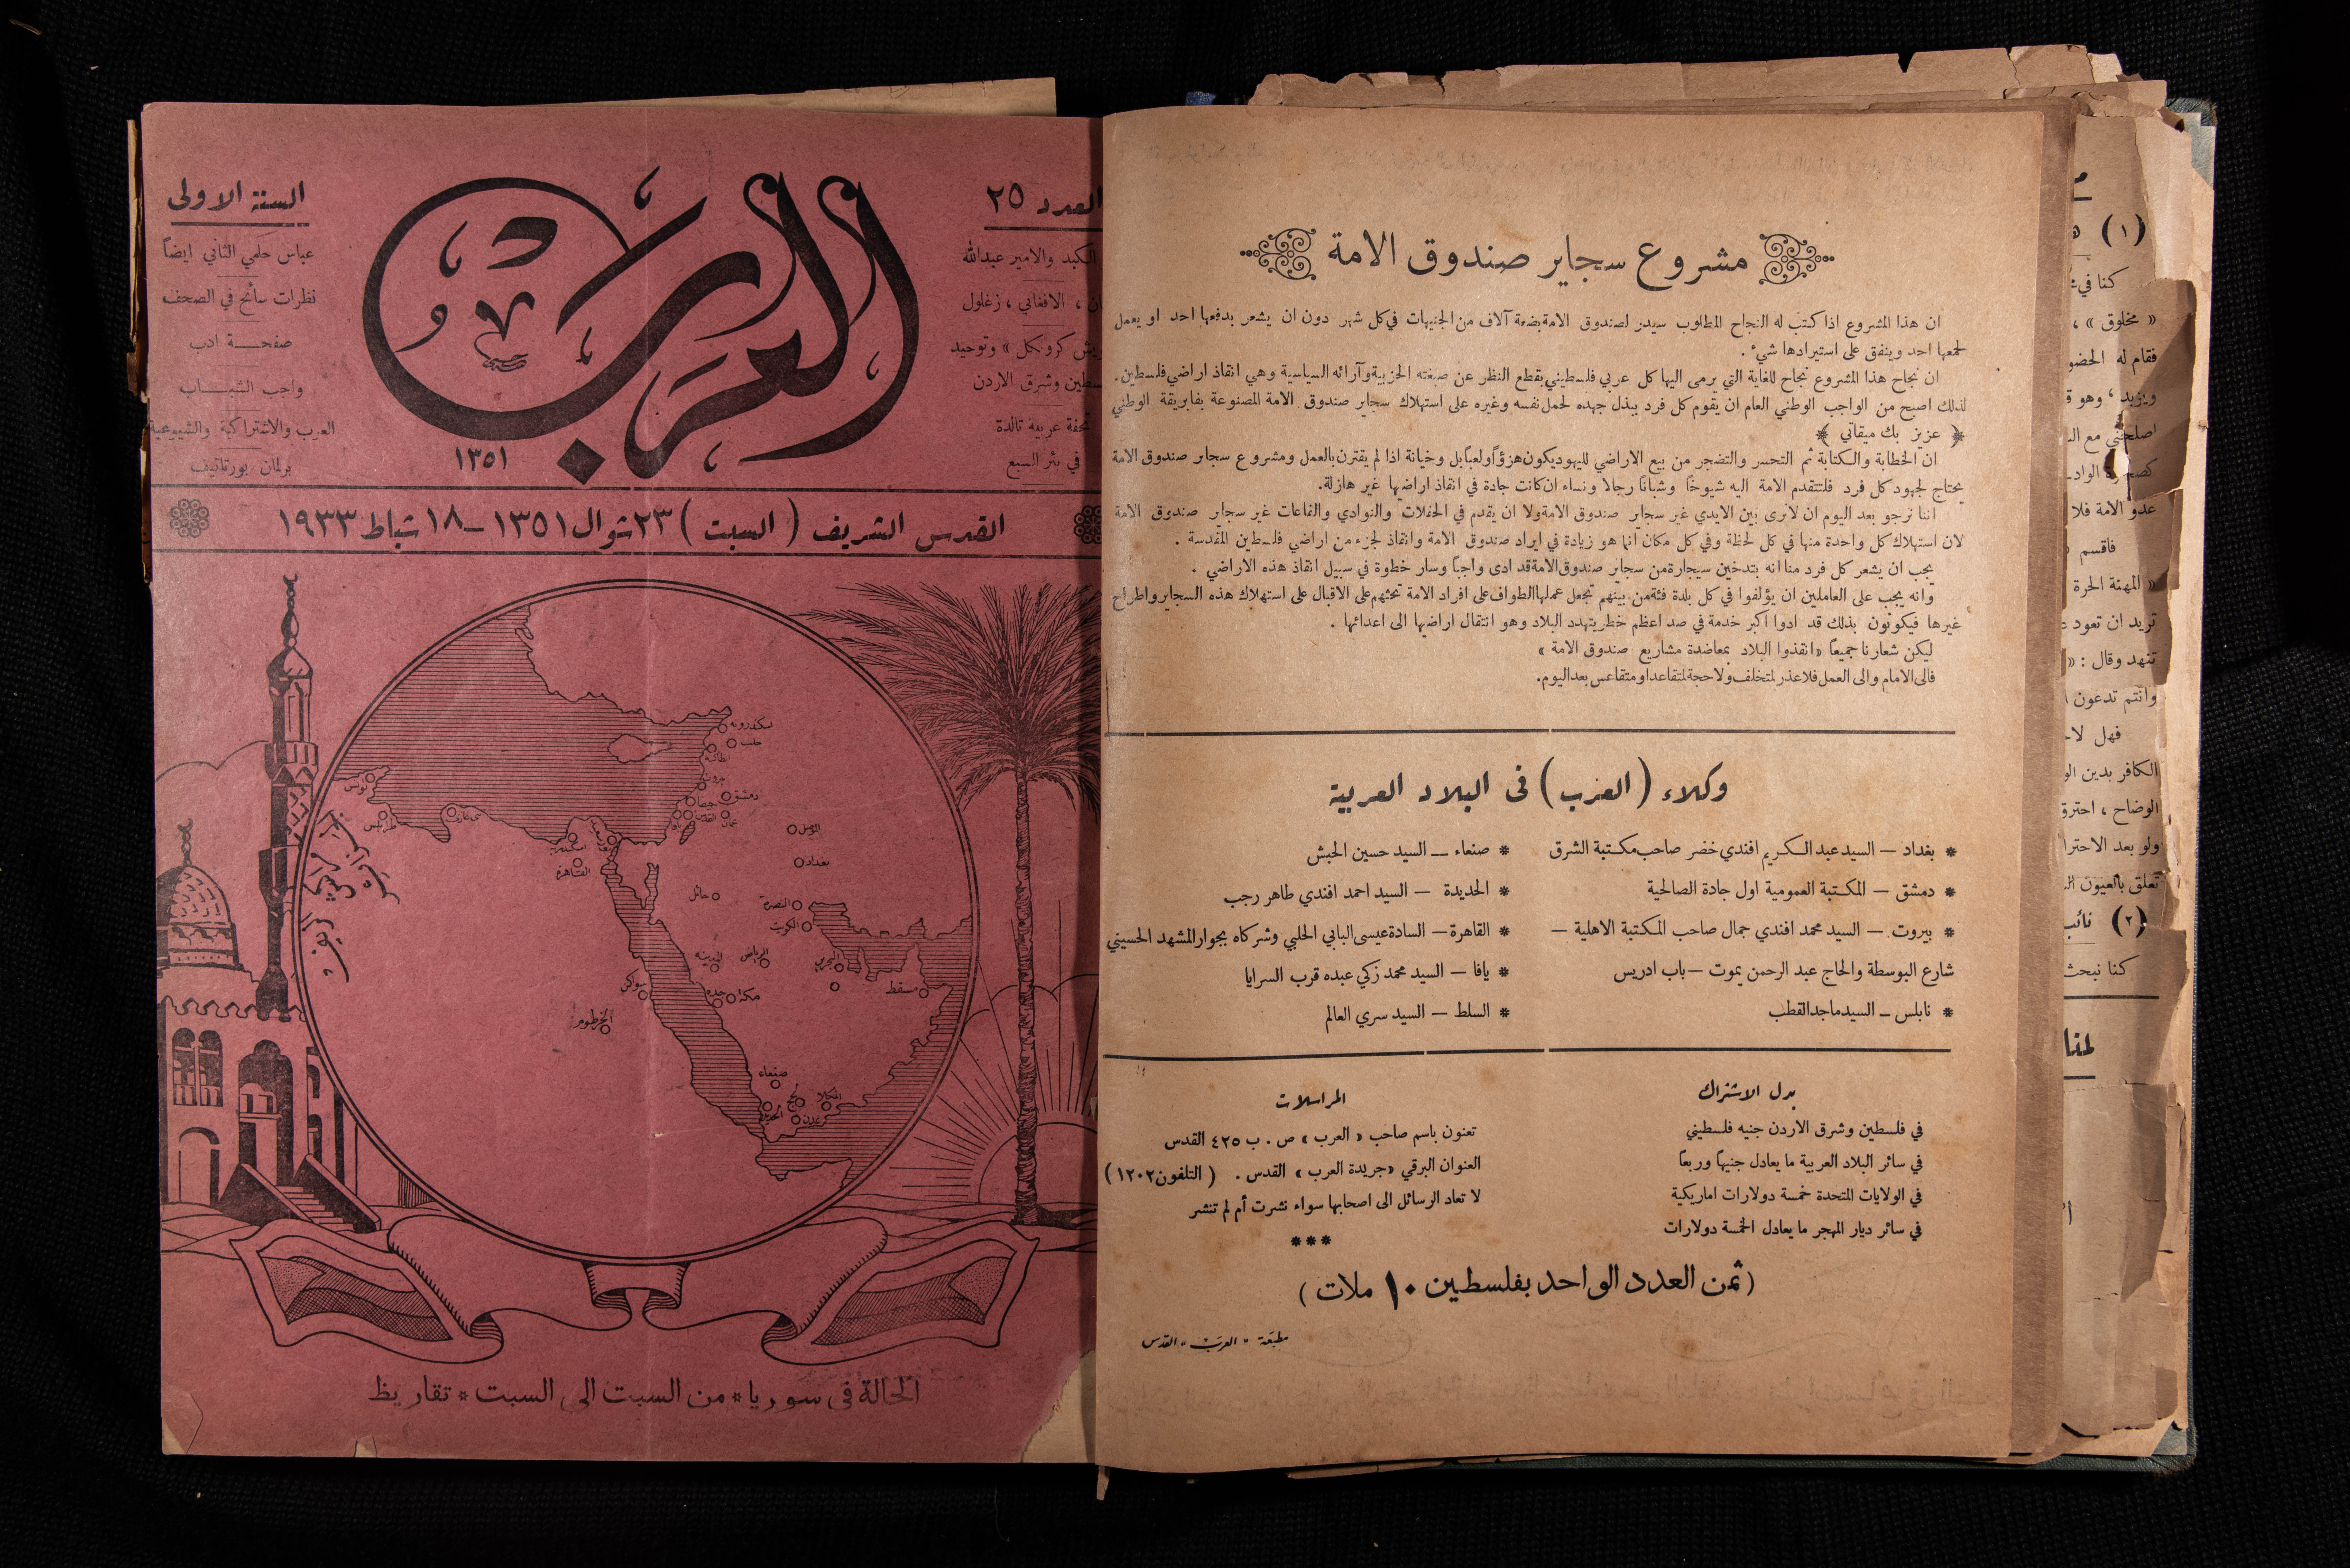 مشروع سجاير صندوق الامة
ان هذا المشروع اذا كتب له النجاح المطلوب سيدر لصندوق الامة بضعة آلاف من الجنيهات في كل شهر دون ان يشعر بدفعها احد او يعمل
لجمعها احد وينفق على استيرادها شيء .
ان نجاح هذا المشروع نجاح للغاية التي يرمى اليها كل عربي فلسطيني بقطع النظر عن صبغته الحزبية وآرائه السياسية وهي انقاذ اراضي فلسطين .
لذلك اصبح من الواجب الوطني العام ان يقوم كل فرد يبذل جهده لحمل نفسه وغيره على استهلاك سجاير صندوق الامة المصنوعة بفابريقة الوطني
﴿ عزيز بك ميقاتي ﴾
ان الخطابة والكتابة ثم التحسر والتضجر من بيع الاراضي لليهود يكون هزؤاً ولعباً بل وخيانة اذا لم يقترن بالعمل ومشروع سجاير صندوق الامة
يحتاج لجهود كل فرد فلتتقدم الامة اليه شيوخا وشبانا رجالا ونساء ان كانت جادة في انقاذ اراضيها غير هازلة.
اننا نرجو بعد اليوم ان لا نرى بين الايدي غير سجاير صندوق الامة ولا ان يقدم في الحفلات والنوادي والقاعات غير سجاير صندوق الامة
لان استهلاك كل واحدة منها في كل لحظة وفي كل مكان انما هو زيادة في ايراد صندوق الامة وانقاذ لجزء من اراضي فلسطين المقدسة .
يجب ان يشعر كل فرد منا انه بتدخين سيجارة من سجاير صندوق الامة قد ادى واجباً وسار خطوة في سبيل انقاذ هذه الاراضي .
وانه يجب على العاملين ان يؤلفوا في كل بلدة فئة من بينهم تجعل عملها الطواف على افراد الامة تحثهم على الاقبال على استهلاك هذه السجاير واطراح
غيرها فيكونون بذلك قد ادوا اكبر خدمة في صد اعظم خطر يتهدد البلاد وهو انتقال اراضيها الى اعدائها .
ليكن شعارنا جميعاً « انقذوا البلاد بمعاضدة مشاريع صندوق الامة »
فالى الامام والى العمل فلا عذر لمتخلف ولا حجة لمتقاعد او متقاعس بعد اليوم.
وكلاء ( العرب ) في البلاد العربية
* بغداد — السيد عبد الكريم افندي خضر صاحب مكتبة الشرق
* دمشق — المكتبة العمومية اول جادة الصالحية
* بيروت — السيد محمد افندي جمال صاحب المكتبة الاهلية —
شارع البوسطة والحاج عبد الرحمن يموت — باب ادريس
* نابلس — السيد ماجد القطب
* صنعاء — السيد حسين الحبش
* الحديدة — السيد احمد افندي طاهر رجب
* القاهرة — السادة عيسى البابي الحلبي وشركاه بجوار المشهد الحسيني
* يافا — السيد محمد زكي عبده قرب السرايا
* السلط — السيد سري العالم
بدل الاشتراك
في فلسطين وشرق الاردن جنيه فلسطيني
في سائر البلاد العربية ما يعادل جنيهاً وربعاً
في الولايات المتحدة خمسة دولارات اماريكية
في سائر ديار المهجر ما يعادل الخمسة دولارات
المراسلات
تعنون باسم صاحب « العرب » ص . ب ٤٢٥ القدس
العنوان البرقي « جريدة العرب » القدس . ( التلفون ١٢٠٢ )
لا تعاد الرسائل الى اصحابها سواء نشرت أم لم تنشر
***
( ثمن العدد الواحد بفلسطين ١٠ ملات )
مطبعة « العرب » القدس
العدد ٢٥
الكبد والامير عبدالله
، الافغاني ، زغلول
كروكل » وتوحيد
وشرق الاردن
تحفة عربية تالدة
في بئر السبع
العرب
١٣٥١
السنة الاولى
عباس حلمي الثاني ايضاً
نظرات سائح في الصحف
صفحة ادب
واجب الشباب
العرب والاشتراكية والشيوعية
برلمان بورتاتيف
القدس الشريف ( السبت ) ٢٣ شوال ١٣٥١ — ١٨ شباط ١٩٣٣
اسكندرونه
حلب
انطاكية
بيروت
دمشق
حيفا
يافا
القدس
عمان
تونس
طرابلس
بني غازي
اسكندرية
القاهرة
الموصل
بغداد
حائل
البصرة
الكويت
المدينة
الرياض
البحرين
مسقط
سواكن
جده
مكة
الخرطوم
صنعاء
لحج
المكلا
الحديدة
عدن
الحالة في سوريا * من السبت الى السبت * تقاريظ
( ١ )
كنا في
« مخلوق » ،
فقام له الحضو
ويزيد ، وهو
اصلحني مع
عدو الامة فلا
فاقسم
« المهنة الحرة
تريد ان تعود
تنهد وقال : «
وانتم تدعون
فهل لا
الكافر بدين
الوضاح ، احترق
ولو بعد الاحترا
تعلق بالعيون
( ٢ ) نائب
كنا نبحث